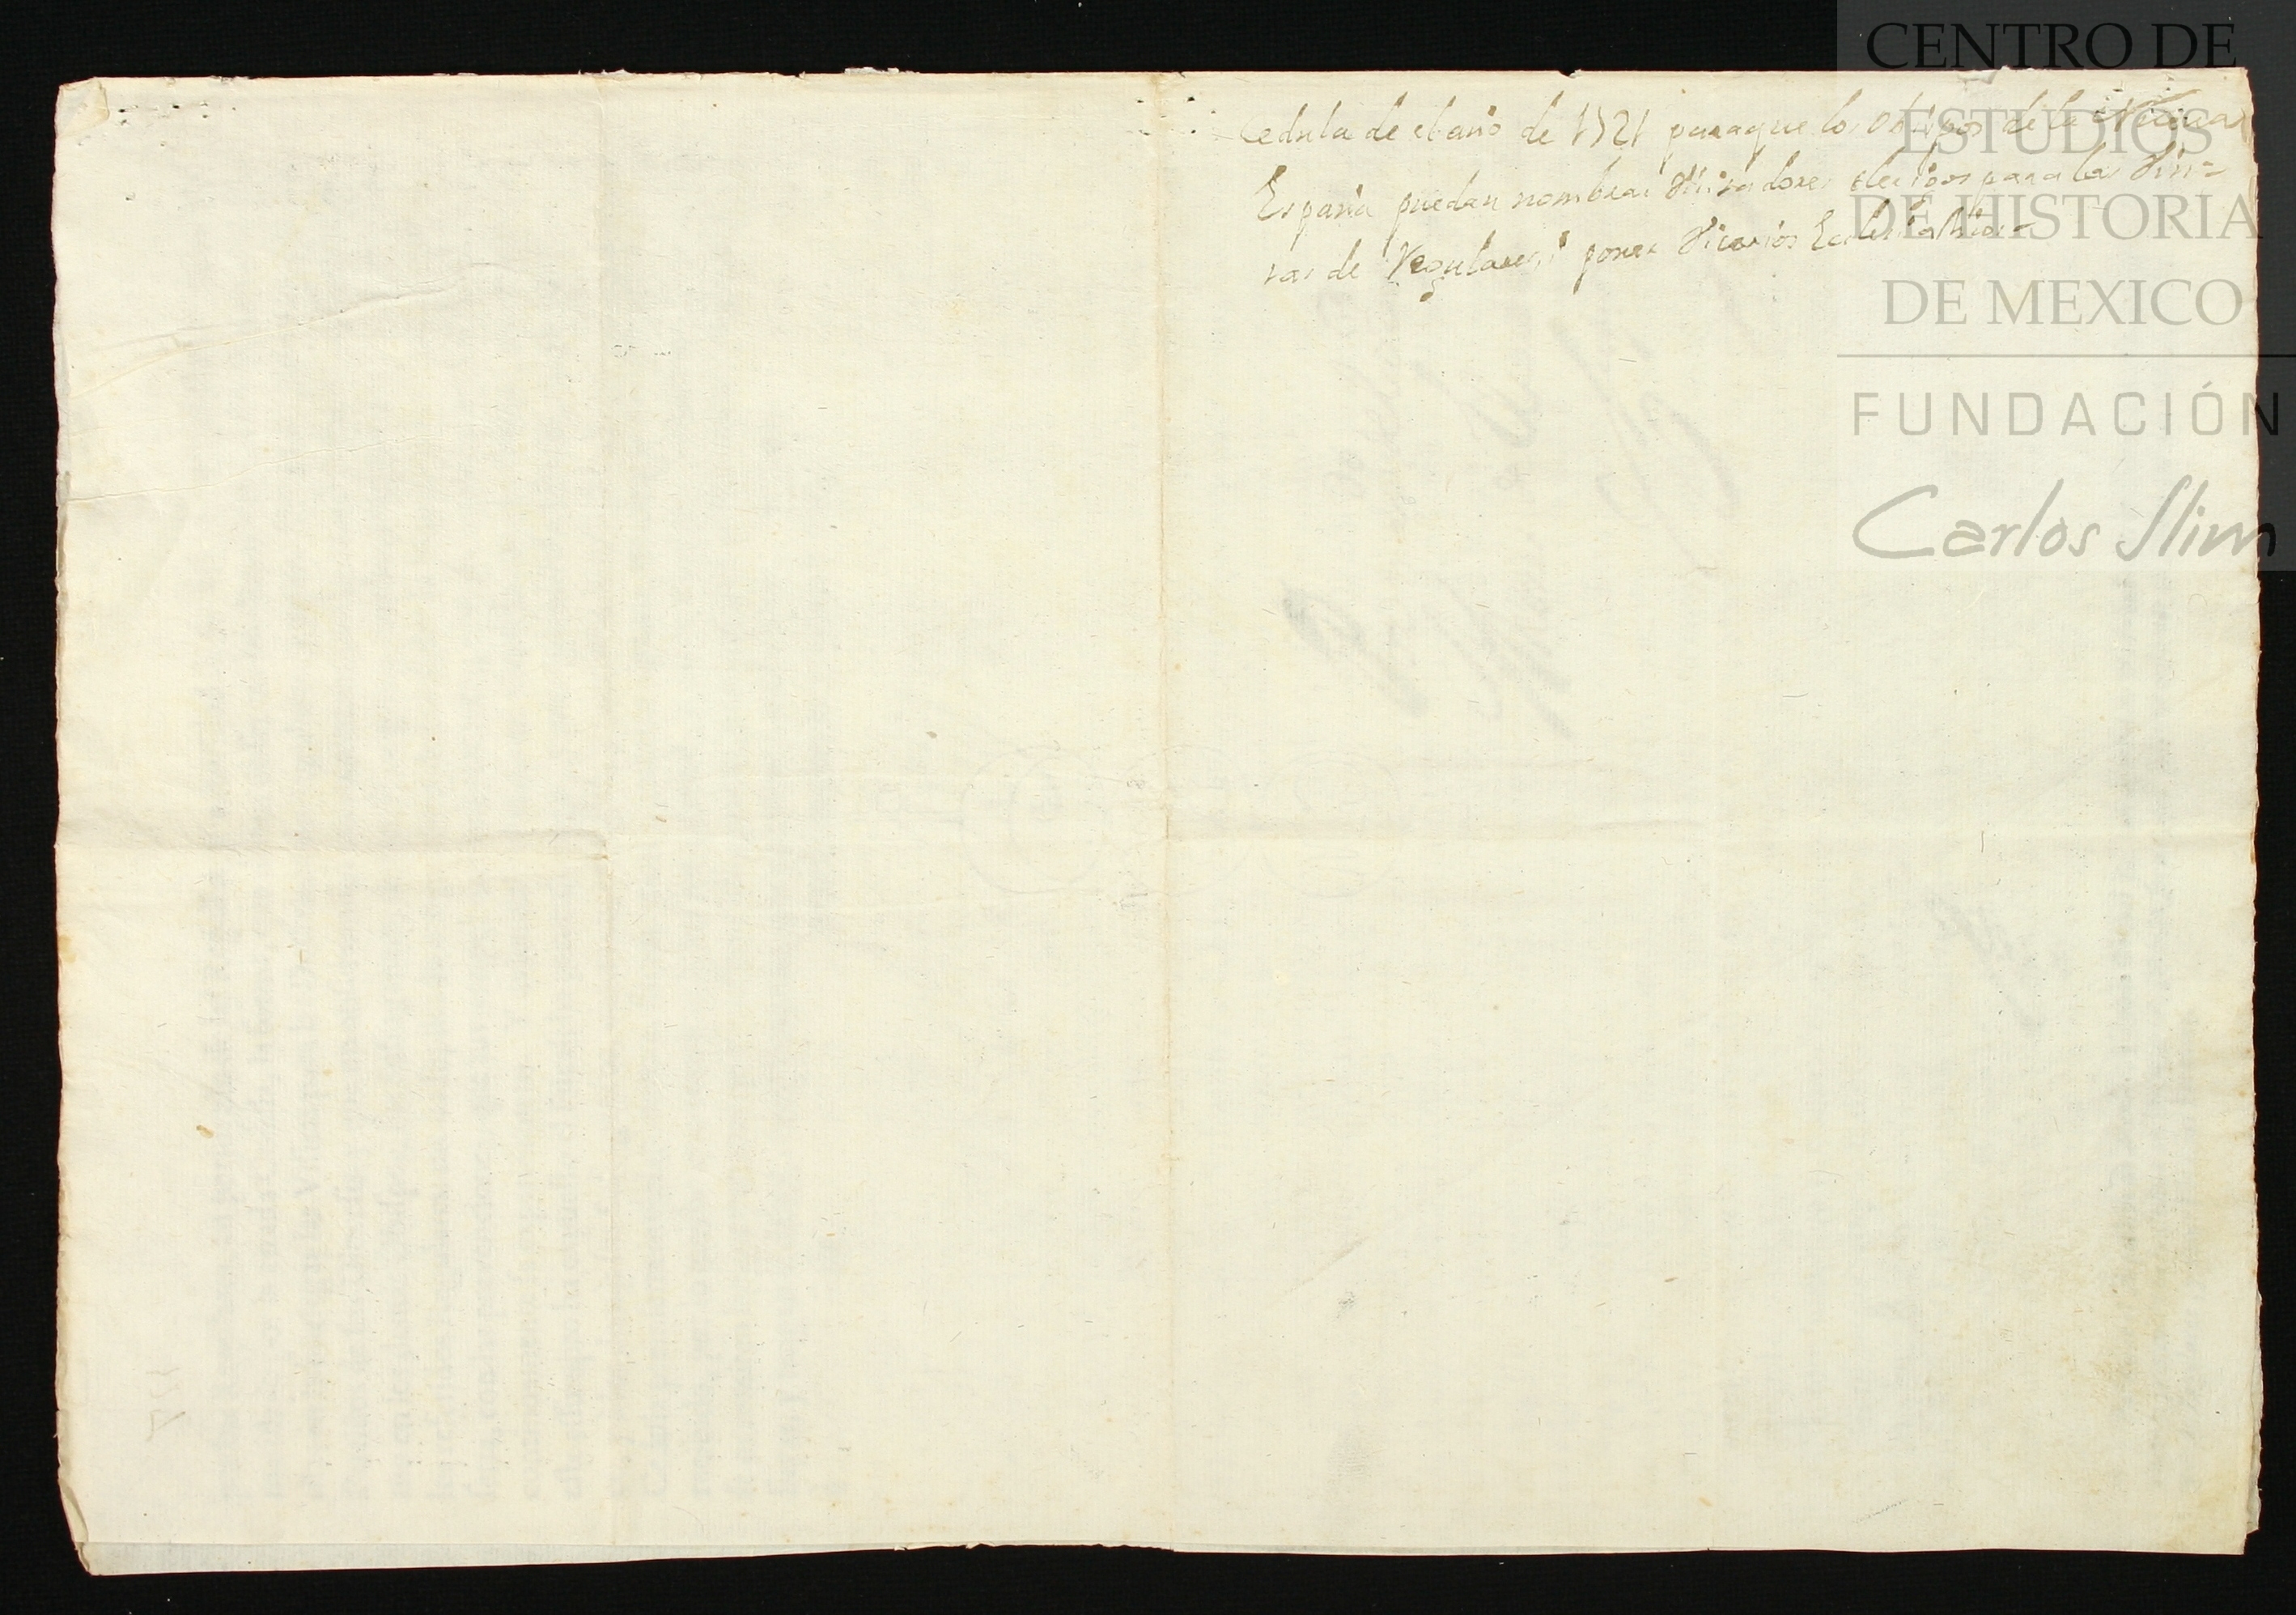 Cedula de el año de 1721 para que los Obispos de la Nueva
España puedan nombrar Visitadores electos para las Visi=
tas de Regulares, i poner Vicarios Eclesiasticos=
CENTRO DE
ESTUDIOS
DE HISTORIA
DE MEXICO
FUNDACIÓN
Carlos Slim